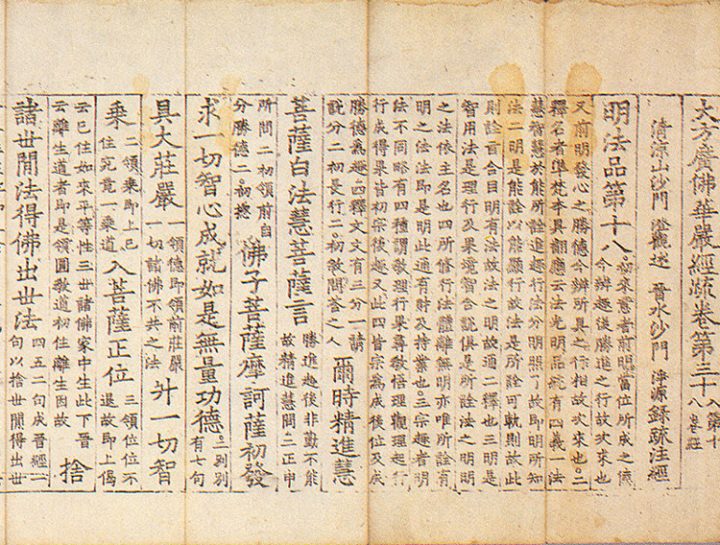 大方廣佛華嚴經疏卷第三十八 入第十八卷經
清涼山沙門 澄觀述 晉水沙門 淨源錄疏注經
明法品第十八 初來意者前明當位所成之德今辨趣後勝進之行故次來也
又前明發心之勝德今辨所具之行相故次來也二
釋名者準梵本具翻應云法光明品統有四義一法
慧智慧於能所詮進趣行法分明照了故由所知
法二明是能詮以能顯行故法是所詮可軌則故此
則詮旨合目明有法故法之明故通二釋也三明是
智用法是理行及果境智合說俱是所詮法之明明
之法依主名也四所修行法體離無明亦唯所詮有
明之法法即是明此通有財及持業也三宗趣者明
法不同略有四種謂教理行果尋教悟理觀理起行
行成得果皆初宗後趣又此四皆宗為成後位及成
勝德為趣四釋文文有三分一請
說分二初長行二初敘問答之人 爾時精進慧
菩薩白法慧菩薩言 勝進趣後非勤不能故精進慧問二正申
所問二初領前自分勝德二初總 佛子菩薩摩訶薩初發
求一切智心成就如是無量功德 二別別有七句
具大莊嚴 一領德即領前莊嚴一切諸佛不共之法 升一切智
乘 二領乘即上已住究竟一乘道 入菩薩正位 三領位位不退故即上偈
云已住如來平等性三世諸佛家中生此下晉云離生道者即是領圓教道初住離生因故 捨
諸世間法得佛出世法 四五二句成晉經一句以捨世間得出世